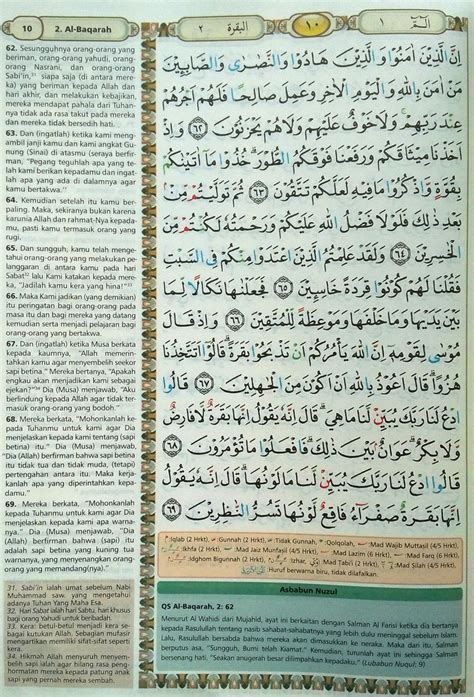 10
2. Al-Baqarah
البقرة ٢
١٠
الـمّ ١
62. Sesungguhnya orang-orang yang
beriman, orang-orang yahudi, orang-
orang Nasrani, dan orang-orang
Sabi'in,³¹ siapa saja (di antara mere-
ka) yang beriman kepada Allah dan
hari akhir, dan melakukan kebajikan,
mereka mendapat pahala dari Tuhan-
nya tidak ada rasa takut pada mereka
dan mereka tidak bersedih hati.
63. Dan (ingatlah) ketika kami meng-
ambil janji kamu dan kami angkat Gu-
nung (Sinai) di atasmu (seraya berfir-
man, "Pegang teguhlah apa yang te-
lah kami berikan kepadamu dan ingat-
lah apa yang ada di dalamnya agar
kamu bertakwa."
64. Kemudian setelah itu kamu ber-
paling. Maka, sekiranya bukan karena
karunia Allah dan rahmat-Nya kepada-
mu, pasti kamu termasuk orang yang
rugi.
65. Dan sungguh, kamu telah menge-
tahui orang-orang yang melakukan pe-
langgaran di antara kamu pada hari
Sabat³² lalu Kami katakan kepada mere-
ka, "Jadilah kamu kera yang hina!"³³
66. Maka Kami jadikan (yang demikian)
itu peringatan bagi orang-orang pada
masa itu dan bagi mereka yang datang
kemudian serta menjadi pelajaran bagi
orang-orang yang bertakwa.
67. Dan (ingatlah) ketika Musa berkata
kepada kaumnya, "Allah memerin-
tahkan kamu agar menyembelih seekor
sapi betina." Mereka bertanya, "Apakah
engkau akan menjadikan kami sebagai
ejekan?"³⁴ Dia (Musa) menjawab, "Aku
berlindung kepada Allah agar tidak ter-
masuk orang-orang yang bodoh."
68. Mereka berkata, "Mohonkanlah ke-
pada Tuhanmu untuk kami agar Dia
menjelaskan kepada kami tentang (sapi
betina) itu." Dia (Musa) menjawab,
"Dia (Allah) berfirman bahwa sapi betina
itu tidak tua dan tidak muda, (tetapi)
pertengahan antara itu. Maka kerja-
kanlah apa yang diperintahkan kepa-
damu."
69. Mereka berkata, "Mohonkanlah
kepada Tuhanmu untuk kami agar Dia
menjelaskan kepada kami apa warna-
nya." Dia (Musa) menjawab, "Dia
(Allah) berfirman bahwa (sapi) itu
adalah sapi betina yang kuning tua
warnanya, yang menyenangkan orang-
orang yang memandang(nya)."
31. Sabi'in ialah umat sebelum Nabi
Muhammad saw. yang mengetahui
adanya Tuhan Yang Maha Esa.
32. Hari Sabat ialah hari Sabtu, hari khusus
bagi orang Yahudi untuk beribadah.
33. Kera: betul-betul menjadi kera se-
bagai kutukan Allah. Sebagian mufasir
mengartikan memiliki sifat-sifat seperti
kera.
34. Hikmah Allah menyuruh menyem-
belih sapi ialah agar hilang rasa peng-
hormatan mereka kepada patung anak
sapi yang pernah mereka sembah.
اِنَّ الَّذِيْنَ اٰمَنُوْا وَالَّذِيْنَ هَادُوْا وَالنَّصٰرٰى وَالصَّابِـِٕيْنَ
مَنْ اٰمَنَ بِاللّٰهِ وَالْيَوْمِ الْاٰخِرِ وَعَمِلَ صَالِحًا فَلَهُمْ اَجْرُهُمْ
عِنْدَ رَبِّهِمْۚ وَلَا خَوْفٌ عَلَيْهِمْ وَلَا هُمْ يَحْزَنُوْنَ ٦٢ وَاِذْ
اَخَذْنَا مِيْثَاقَكُمْ وَرَفَعْنَا فَوْقَكُمُ الطُّوْرَۗ خُذُوْا مَآ اٰتَيْنٰكُمْ
بِقُوَّةٍ وَّاذْكُرُوْا مَا فِيْهِ لَعَلَّكُمْ تَتَّقُوْنَ ٦٣ ثُمَّ تَوَلَّيْتُمْ مِّنْۢ
بَعْدِ ذٰلِكَۚ فَلَوْلَا فَضْلُ اللّٰهِ عَلَيْكُمْ وَرَحْمَتُهٗ لَكُنْتُمْ مِّنَ
الْخٰسِرِيْنَ ٦٤ وَلَقَدْ عَلِمْتُمُ الَّذِيْنَ اعْتَدَوْا مِنْكُمْ فِى السَّبْتِ
فَقُلْنَا لَهُمْ كُوْنُوْا قِرَدَةً خَاسِـِٕيْنَ ٦٥ فَجَعَلْنٰهَا نَكَالًا لِّمَا
بَيْنَ يَدَيْهَا وَمَا خَلْفَهَا وَمَوْعِظَةً لِّلْمُتَّقِيْنَ ٦٦ وَاِذْ قَالَ
مُوْسٰى لِقَوْمِهٖٓ اِنَّ اللّٰهَ يَأْمُرُكُمْ اَنْ تَذْبَحُوْا بَقَرَةًۗ قَالُوْٓا اَتَتَّخِذُنَا
هُزُوًاۗ قَالَ اَعُوْذُ بِاللّٰهِ اَنْ اَكُوْنَ مِنَ الْجٰهِلِيْنَ ٦٧ قَالُوا
ادْعُ لَنَا رَبَّكَ يُبَيِّنْ لَّنَا مَا هِيَۗ قَالَ اِنَّهٗ يَقُوْلُ اِنَّهَا بَقَرَةٌ لَّا فَارِضٌ
وَّلَا بِكْرٌۗ عَوَانٌۢ بَيْنَ ذٰلِكَۗ فَافْعَلُوْا مَا تُؤْمَرُوْنَ ٦٨
قَالُوا ادْعُ لَنَا رَبَّكَ يُبَيِّنْ لَّنَا مَا لَوْنُهَاۗ قَالَ اِنَّهٗ يَقُوْلُ
اِنَّهَا بَقَرَةٌ صَفْرَاۤءُ فَاقِعٌ لَّوْنُهَا تَسُرُّ النّٰظِرِيْنَ ٦٩
:Iqlab (2 Hrkt), :Gunnah (2 Hrkt), :Tidak Gunnah, :Qolqolah, :Mad Wajib Muttasil (4/5 Hrkt),
:Ikhfa (2 Hrkt), :Mad Jaiz Munfasil (4/5 Hrkt), :Mad Lazim (6 Hrkt), :Mad Farq (6 Hrkt),
:Idghom Bigunnah (2 Hrkt), :Mad Tabi'i (2 Hrkt), :Mad Silah (4/5 Hrkt),
Huruf berwarna biru, tidak dilafalkan.
Asbabun Nuzul
QS Al-Baqarah, 2: 62
Menurut Al Wahidi dari Mujahid, ayat ini berkaitan dengan Salman Al Farisi ketika dia bertanya
kepada Rasulullah tentang nasib sahabat-sahabatnya yang lebih dulu meninggal sebelum Islam.
Lalu, Rasulullah bersabda bahwa mereka akan dimasukkan ke neraka. Maka dari itu, Salman
berputus asa, "Sungguh, Bumi telah kiamat." Kemudian, turunlah ayat ini sehingga Salman
bersenang hati. "Seakan anugerah besar dilimpahkan kepadaku." (Lubabun Nuqul: 9)